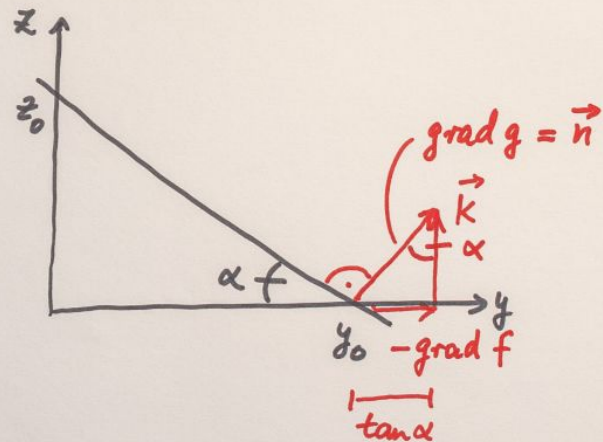 z
z₀
grad g = n⃗
k⃗
α
α
y₀
y
-grad f
tan α